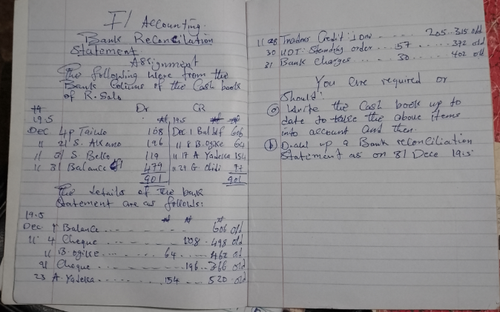 F/ Accounting
Bank Reconciliation
Statement
Assignment
The following were from the
Bank Colums of the Cash book
of R. Sato
Dr CR
19.5 19.5
Dec 4 P Taiwo 168 Dec 1 Bal b/f 606
" 21 S. 196 " 8 B. Ogisso 64
" 31 S Bello 119 " 17 A Yadessa 154
" 31 Balance 479 " 29 G. 97
901 901
The details of the bank
Statement are as follows:
19-5
Dec 1 Balance 606 old
" 4 Cheque 108 - 498 old
" B. Ogisso 64 462 old
21 Cheque 196 - 366 old
23 A. Yadessa 154 520 old
" 28 Traders Credit 205 - 315 old
" 30 UOT: Standing order 57 372 old
31 Bank Charges 30 402 old
You are required or
Should:
(a) Write the Cash book up to
date to take the above items
into account and then
(b) Draw up a Bank reconciliation
Statement as on 31 Dece 19.5